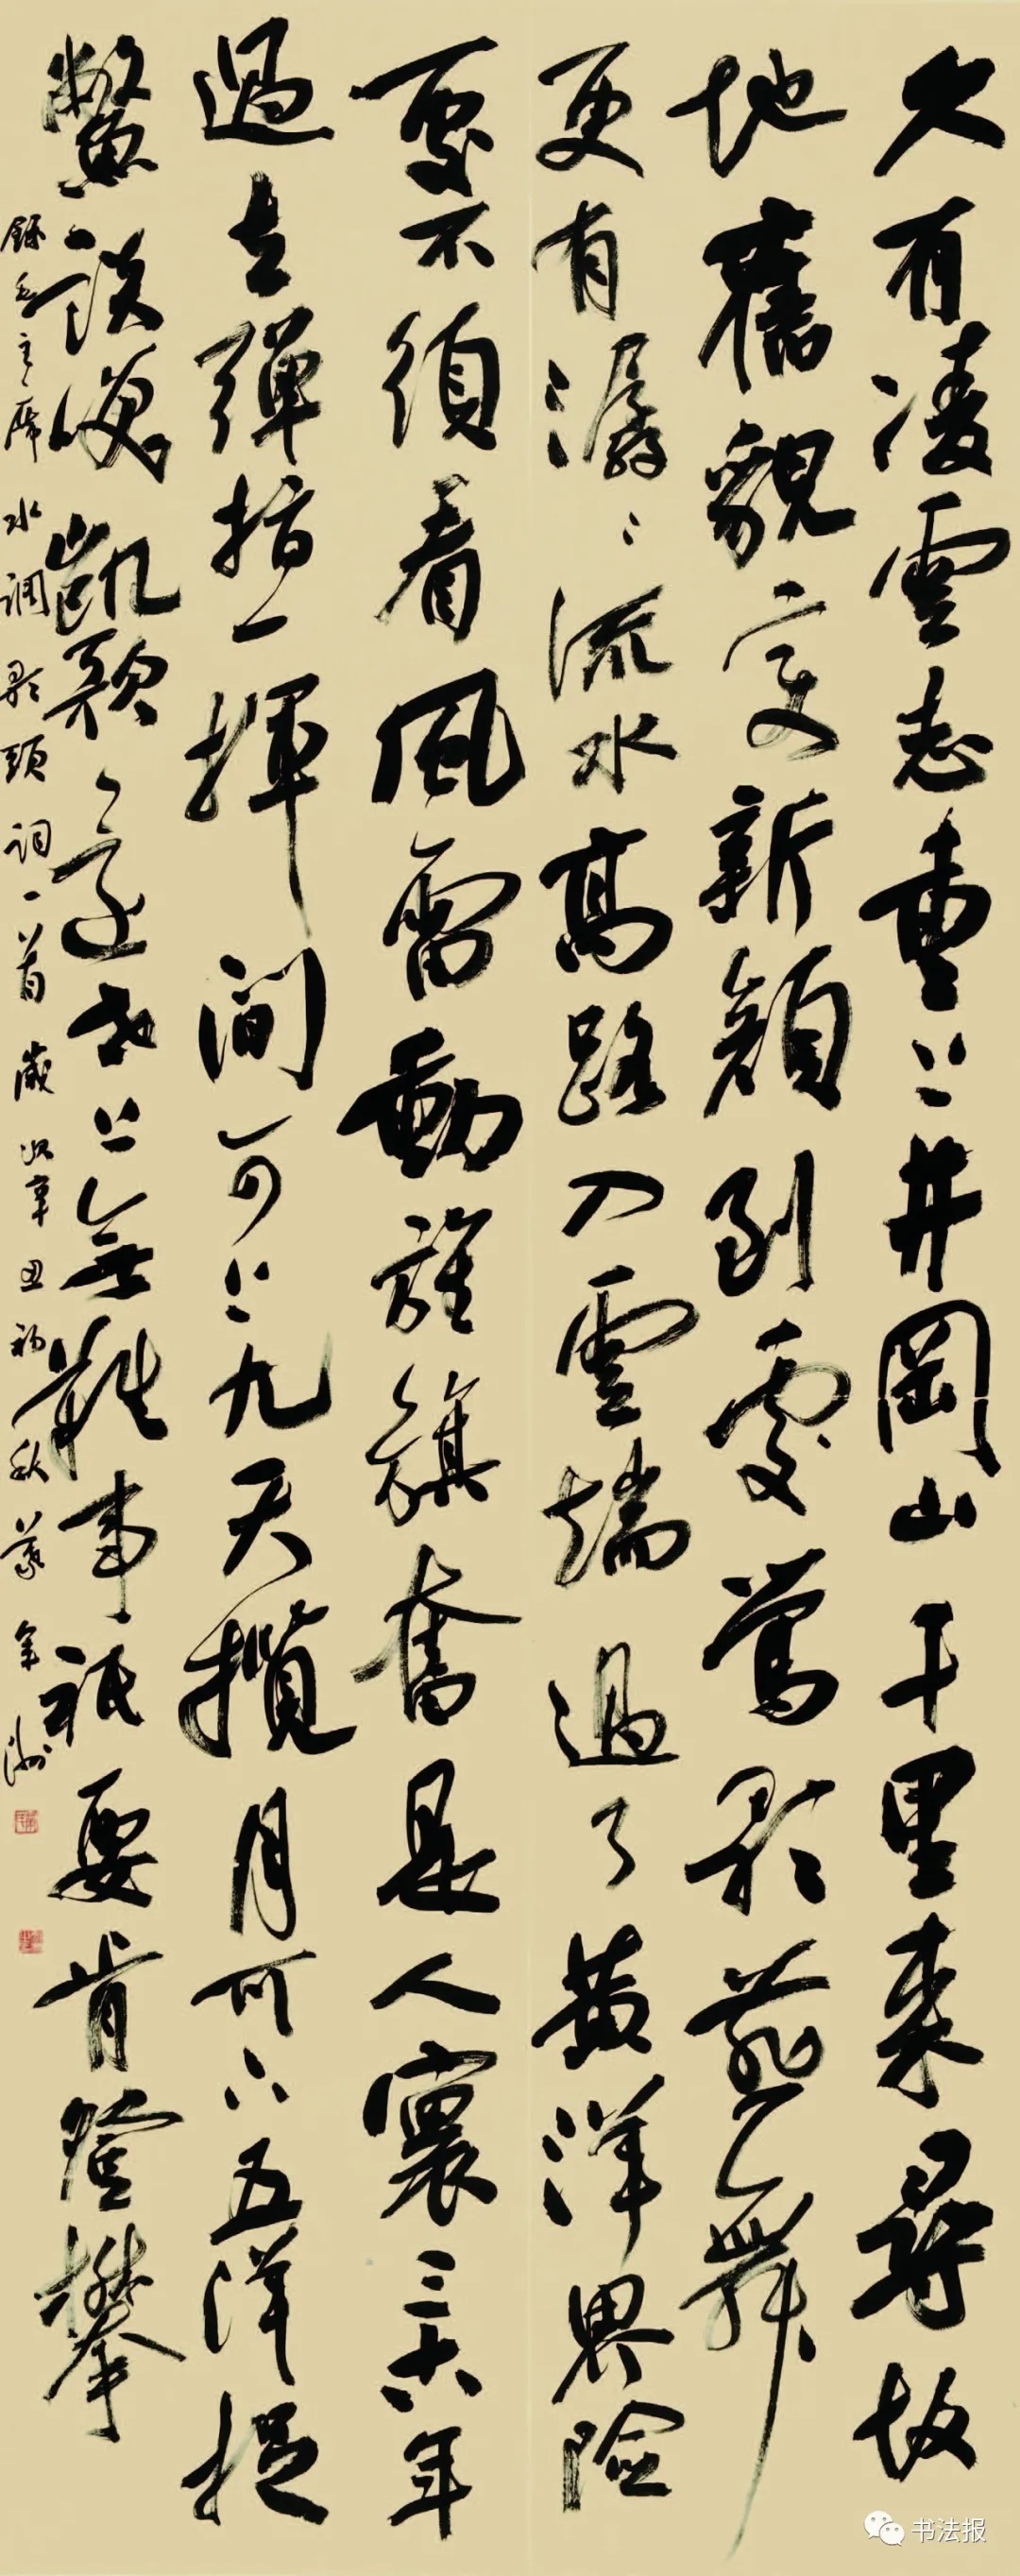 久有凌雲志重上井岡山千里来尋故
地舊貌变新顔到處鶯歌燕舞
更有潺〻流水高路入雲端過了黄洋界險
處不須看風雷動旌旗奮是人寰三十八年
過去彈指一揮間可上九天攬月可下五洋捉
鱉談笑凱歌還世上無難事衹要肯登攀
録毛主席水调歌頭词一首歲次辛丑初秋
书法报